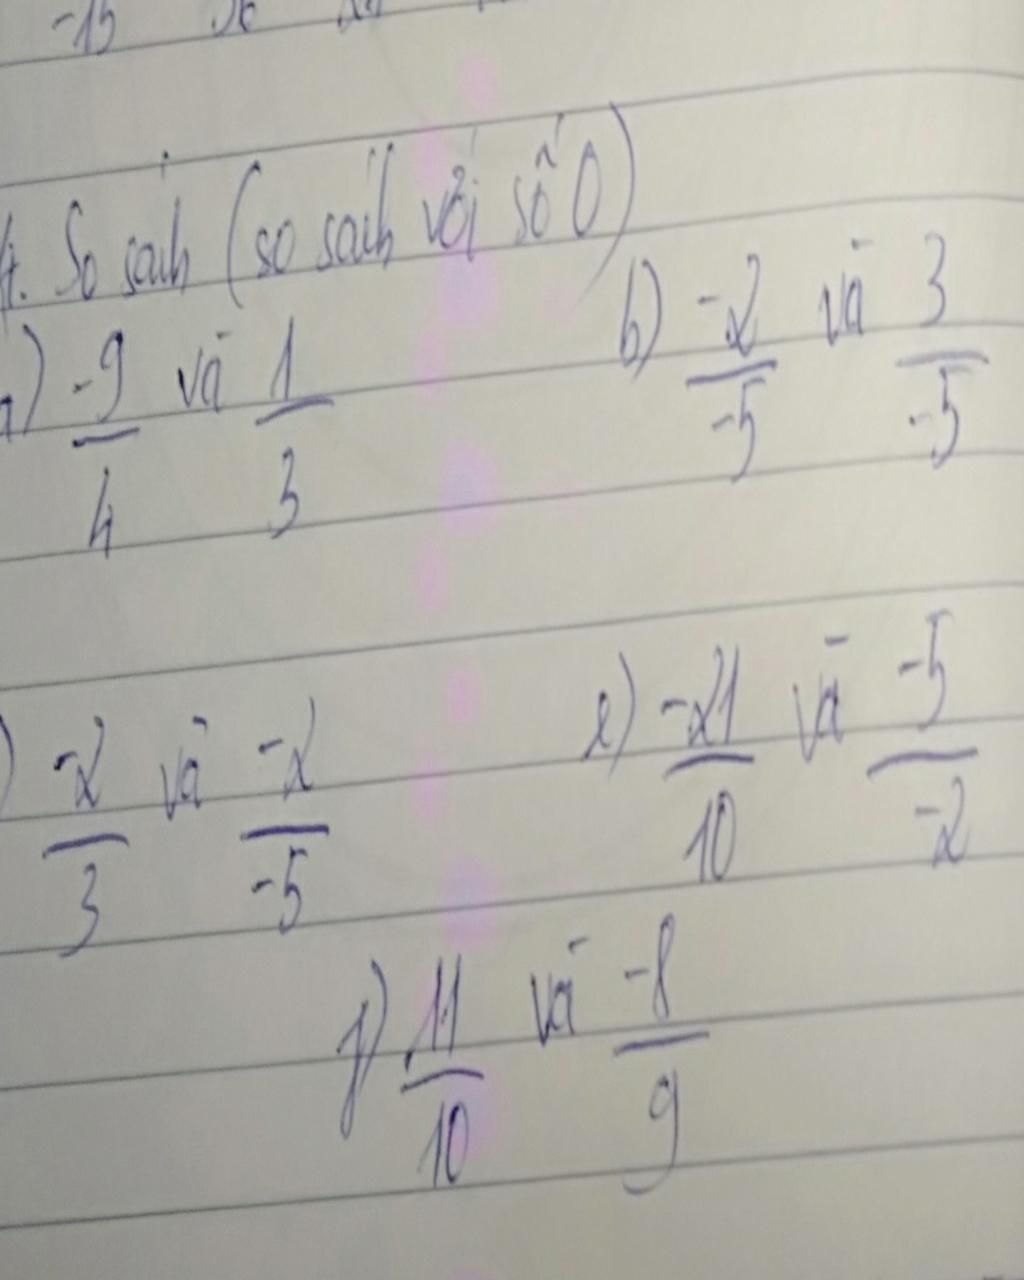 -15
4. So sánh (so sánh với số 0)
a) -9/4 và 1/3 b) -2/-5 và 3/-5
) -2/3 và -2/-5 e) -21/10 và -5/-2
f) 11/10 và -8/9